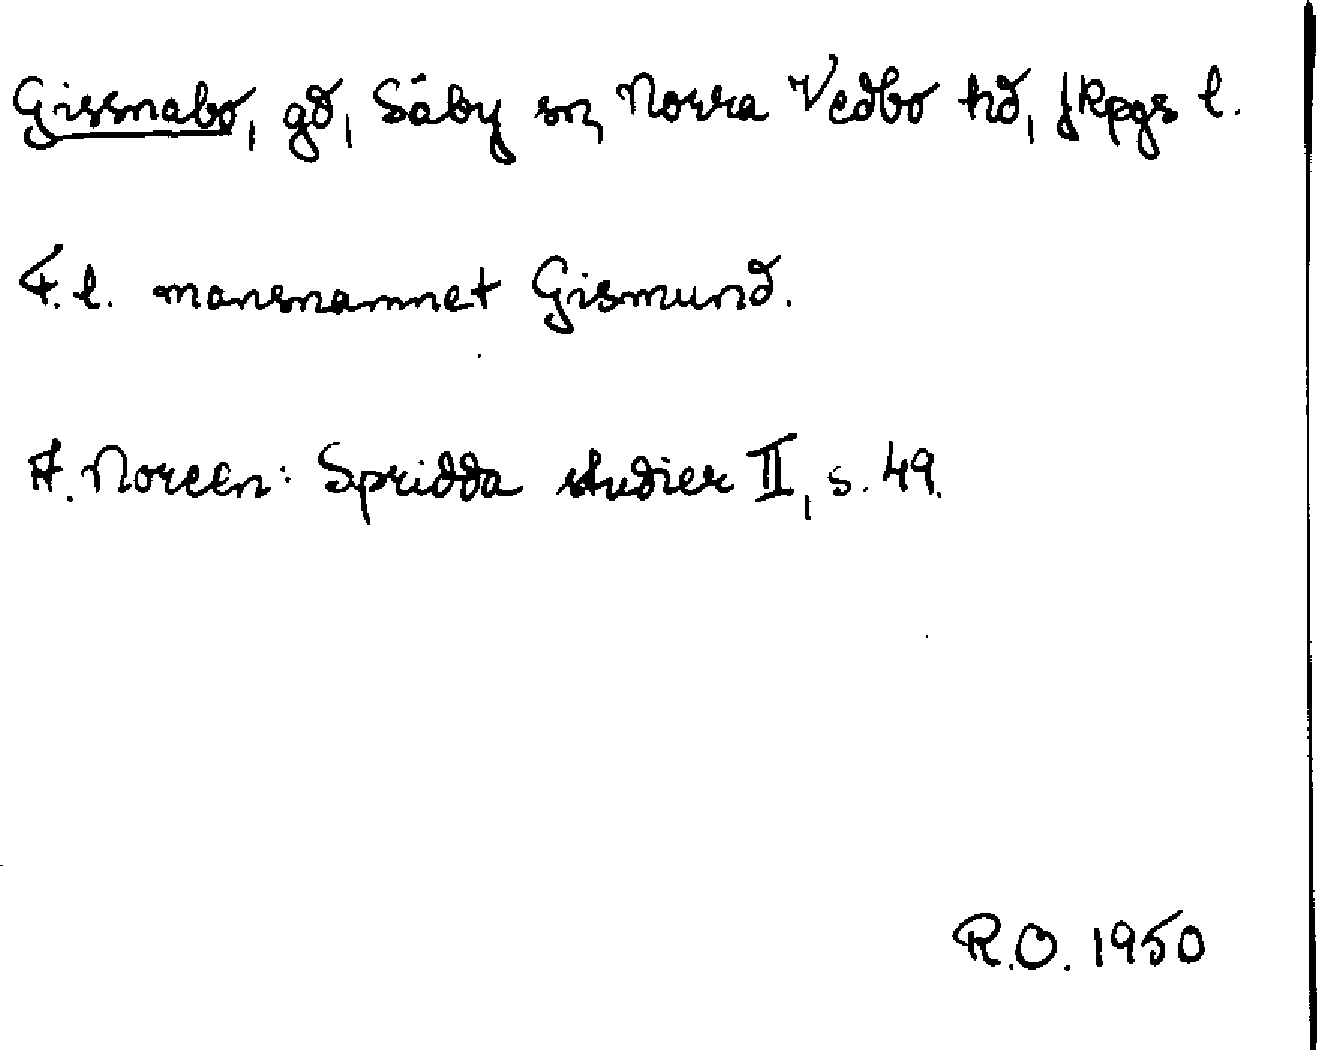 Gissnabo, gd, Säby sn, Norra Vedbo hd, Jkpgs l.
F.l. mansnamnet Gismund.
A. Noreen: Spridda studier II, s. 49.
R.O. 1950